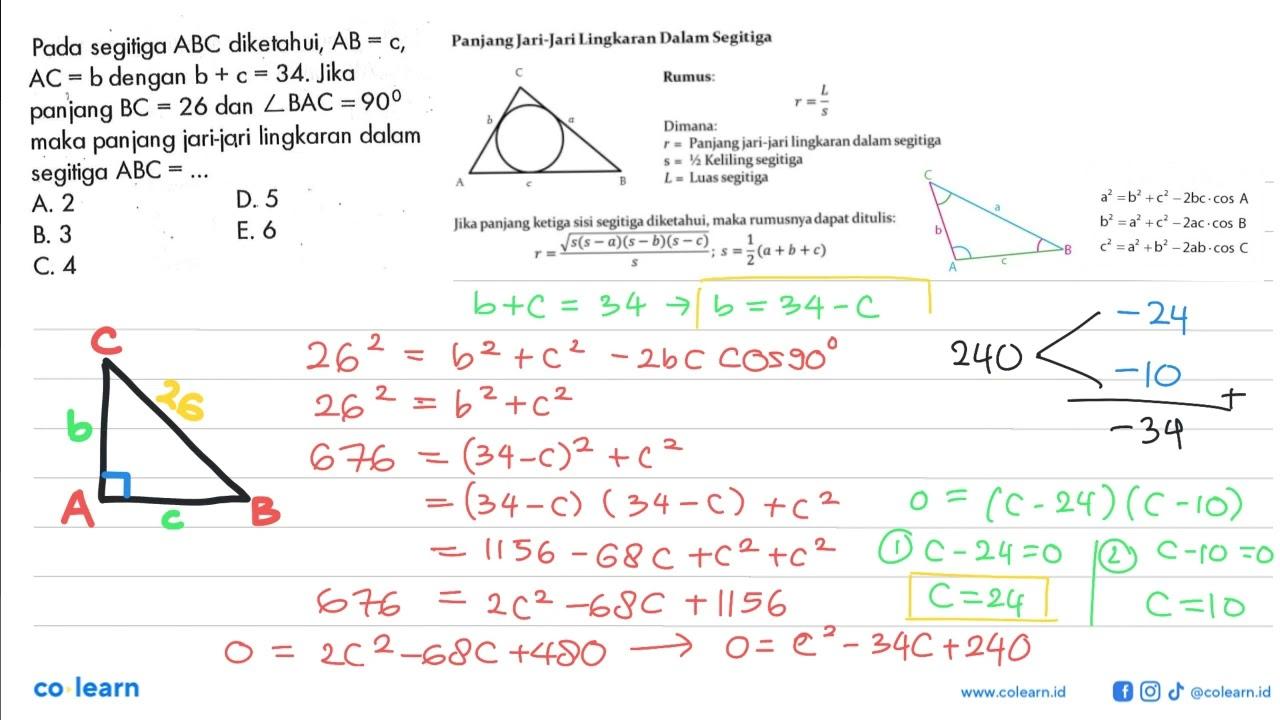 Pada segitiga ABC diketahui, AB = c,
AC = b dengan b + c = 34. Jika
panjang BC = 26 dan ∠BAC = 90⁰
maka panjang jari-jari lingkaran dalam
segitiga ABC = ...
A. 2 D. 5
B. 3 E. 6
C. 4
Panjang Jari-Jari Lingkaran Dalam Segitiga
C
b a
A c B
Rumus:
r = L/s
Dimana:
r = Panjang jari-jari lingkaran dalam segitiga
s = ½ Keliling segitiga
L = Luas segitiga
Jika panjang ketiga sisi segitiga diketahui, maka rumusnya dapat ditulis:
r = √(s(s − a)(s − b)(s − c))/s ; s = 1/2 (a + b + c)
C
a
b
B
A c
a² = b² + c² − 2bc · cos A
b² = a² + c² − 2ac · cos B
c² = a² + b² − 2ab · cos C
b+c = 34 → b = 34-c
C
26
b
A c B
26² = b² + c² - 2bc cos90⁰
26² = b² + c²
676 = (34-c)² + c²
= (34-c) (34-c) + c²
= 1156 - 68c + c² + c²
676 = 2c² - 68c + 1156
0 = 2c² - 68c + 480 → 0 = c² - 34c + 240
-24
240 < -10
+
-34
0 = (c-24)(c-10)
① c-24=0 ② c-10=0
c=24 c=10
co learn
www.colearn.id @colearn.id